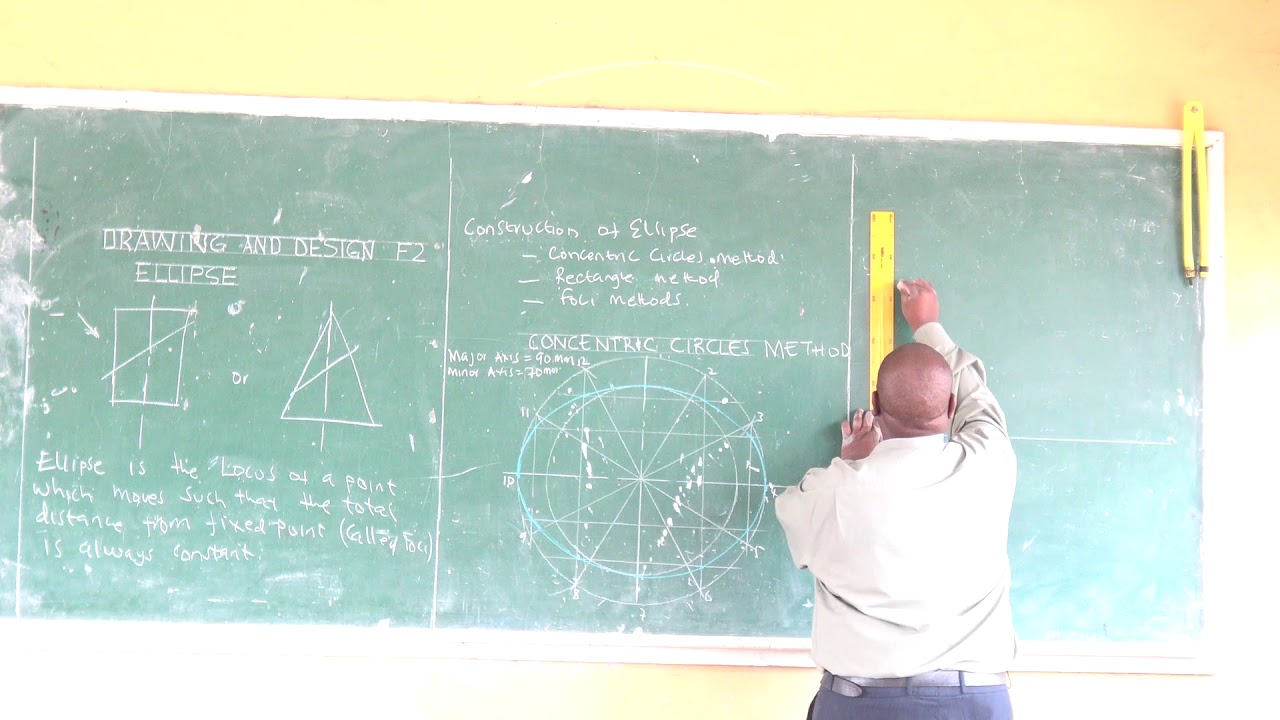 DRAWING AND DESIGN F2
ELLIPSE
or
Ellipse is the Locus of a point
which moves such that the total
distance from fixed point (called Foci)
is always constant.
Construction of Ellipse
— Concentric Circles method.
— Rectangle method
— Foci methods.
CONCENTRIC CIRCLES METHOD
Major Axis = 90mm
Minor Axis = 70mm
12
2
11
3
10
9
5
8
6
7